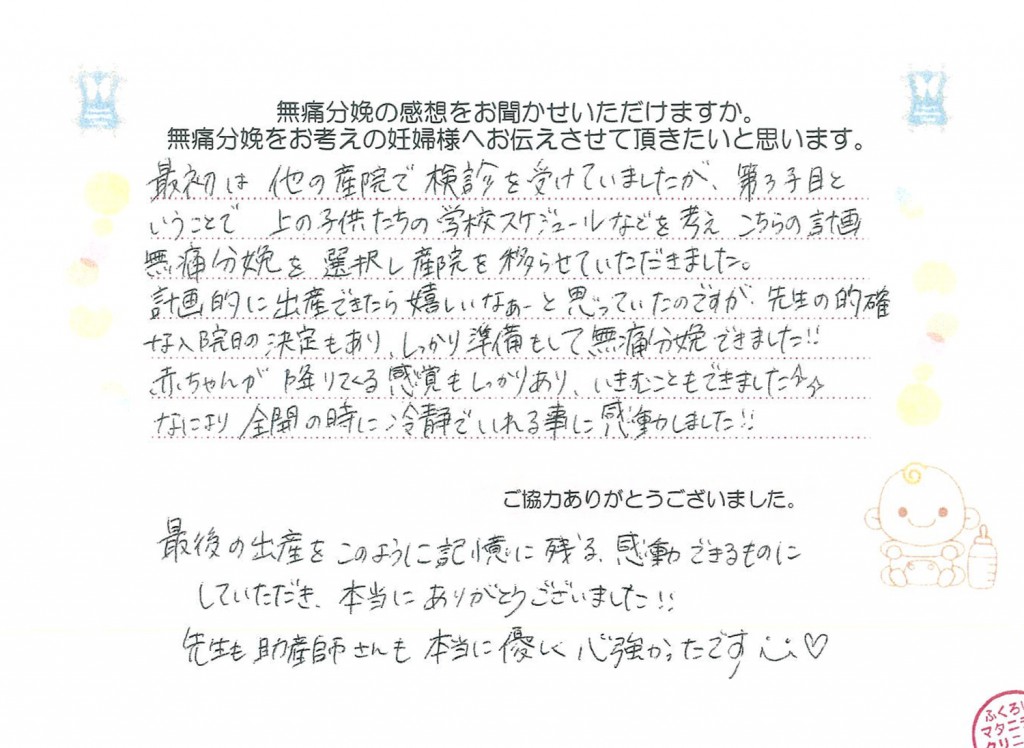 無痛分娩の感想をお聞かせいただけますか。
無痛分娩をお考えの妊婦様へお伝えさせて頂きたいと思います。
最初は 他の産院で 検診を受けていましたが、第3子目と
いうことで 上の子供たちの学校スケジュールなどを考え こちらの計画
無痛分娩を 選択し産院を移らせていただきました。
計画的に出産できたら嬉しいなぁーと思っていたのですが、先生の的確
な入院日の決定もあり、しっかり準備もして無痛分娩できました!!
赤ちゃんが 降りてくる感覚もしっかりあり、いきむこともできました☆☆
なにより 全開の時に冷静でいれる事に感動しました!!
ご協力ありがとうございました。
最後の出産をこのように記憶に残る、感動できるものに
していただき、本当にありがとうございました!!
先生も助産師さんも 本当に優しく 心強かったです♡
ふくろ
マタニ
クリニ